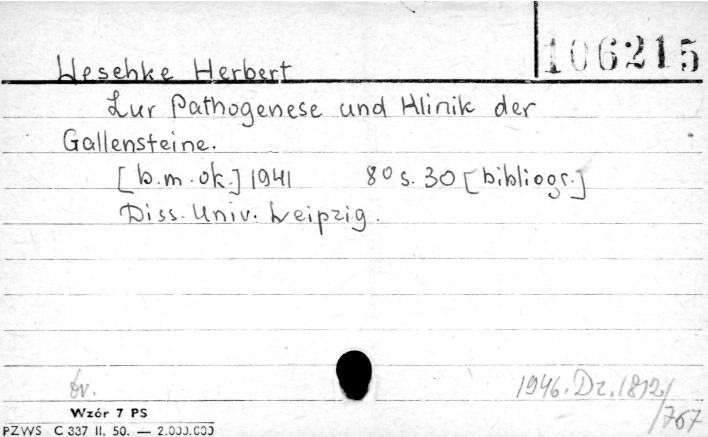 106215
Weschke Herbert
Zur Pathogenese und Klinik der
Gallensteine.
[b.m.ok.] 1941 8o s. 30 [bibliogr.]
Diss. Univ. Leipzig.
br.
1946. Dz. 1812/
/767
Wzór 7 PS
PZWS C 337 II. 50. — 2.000.000